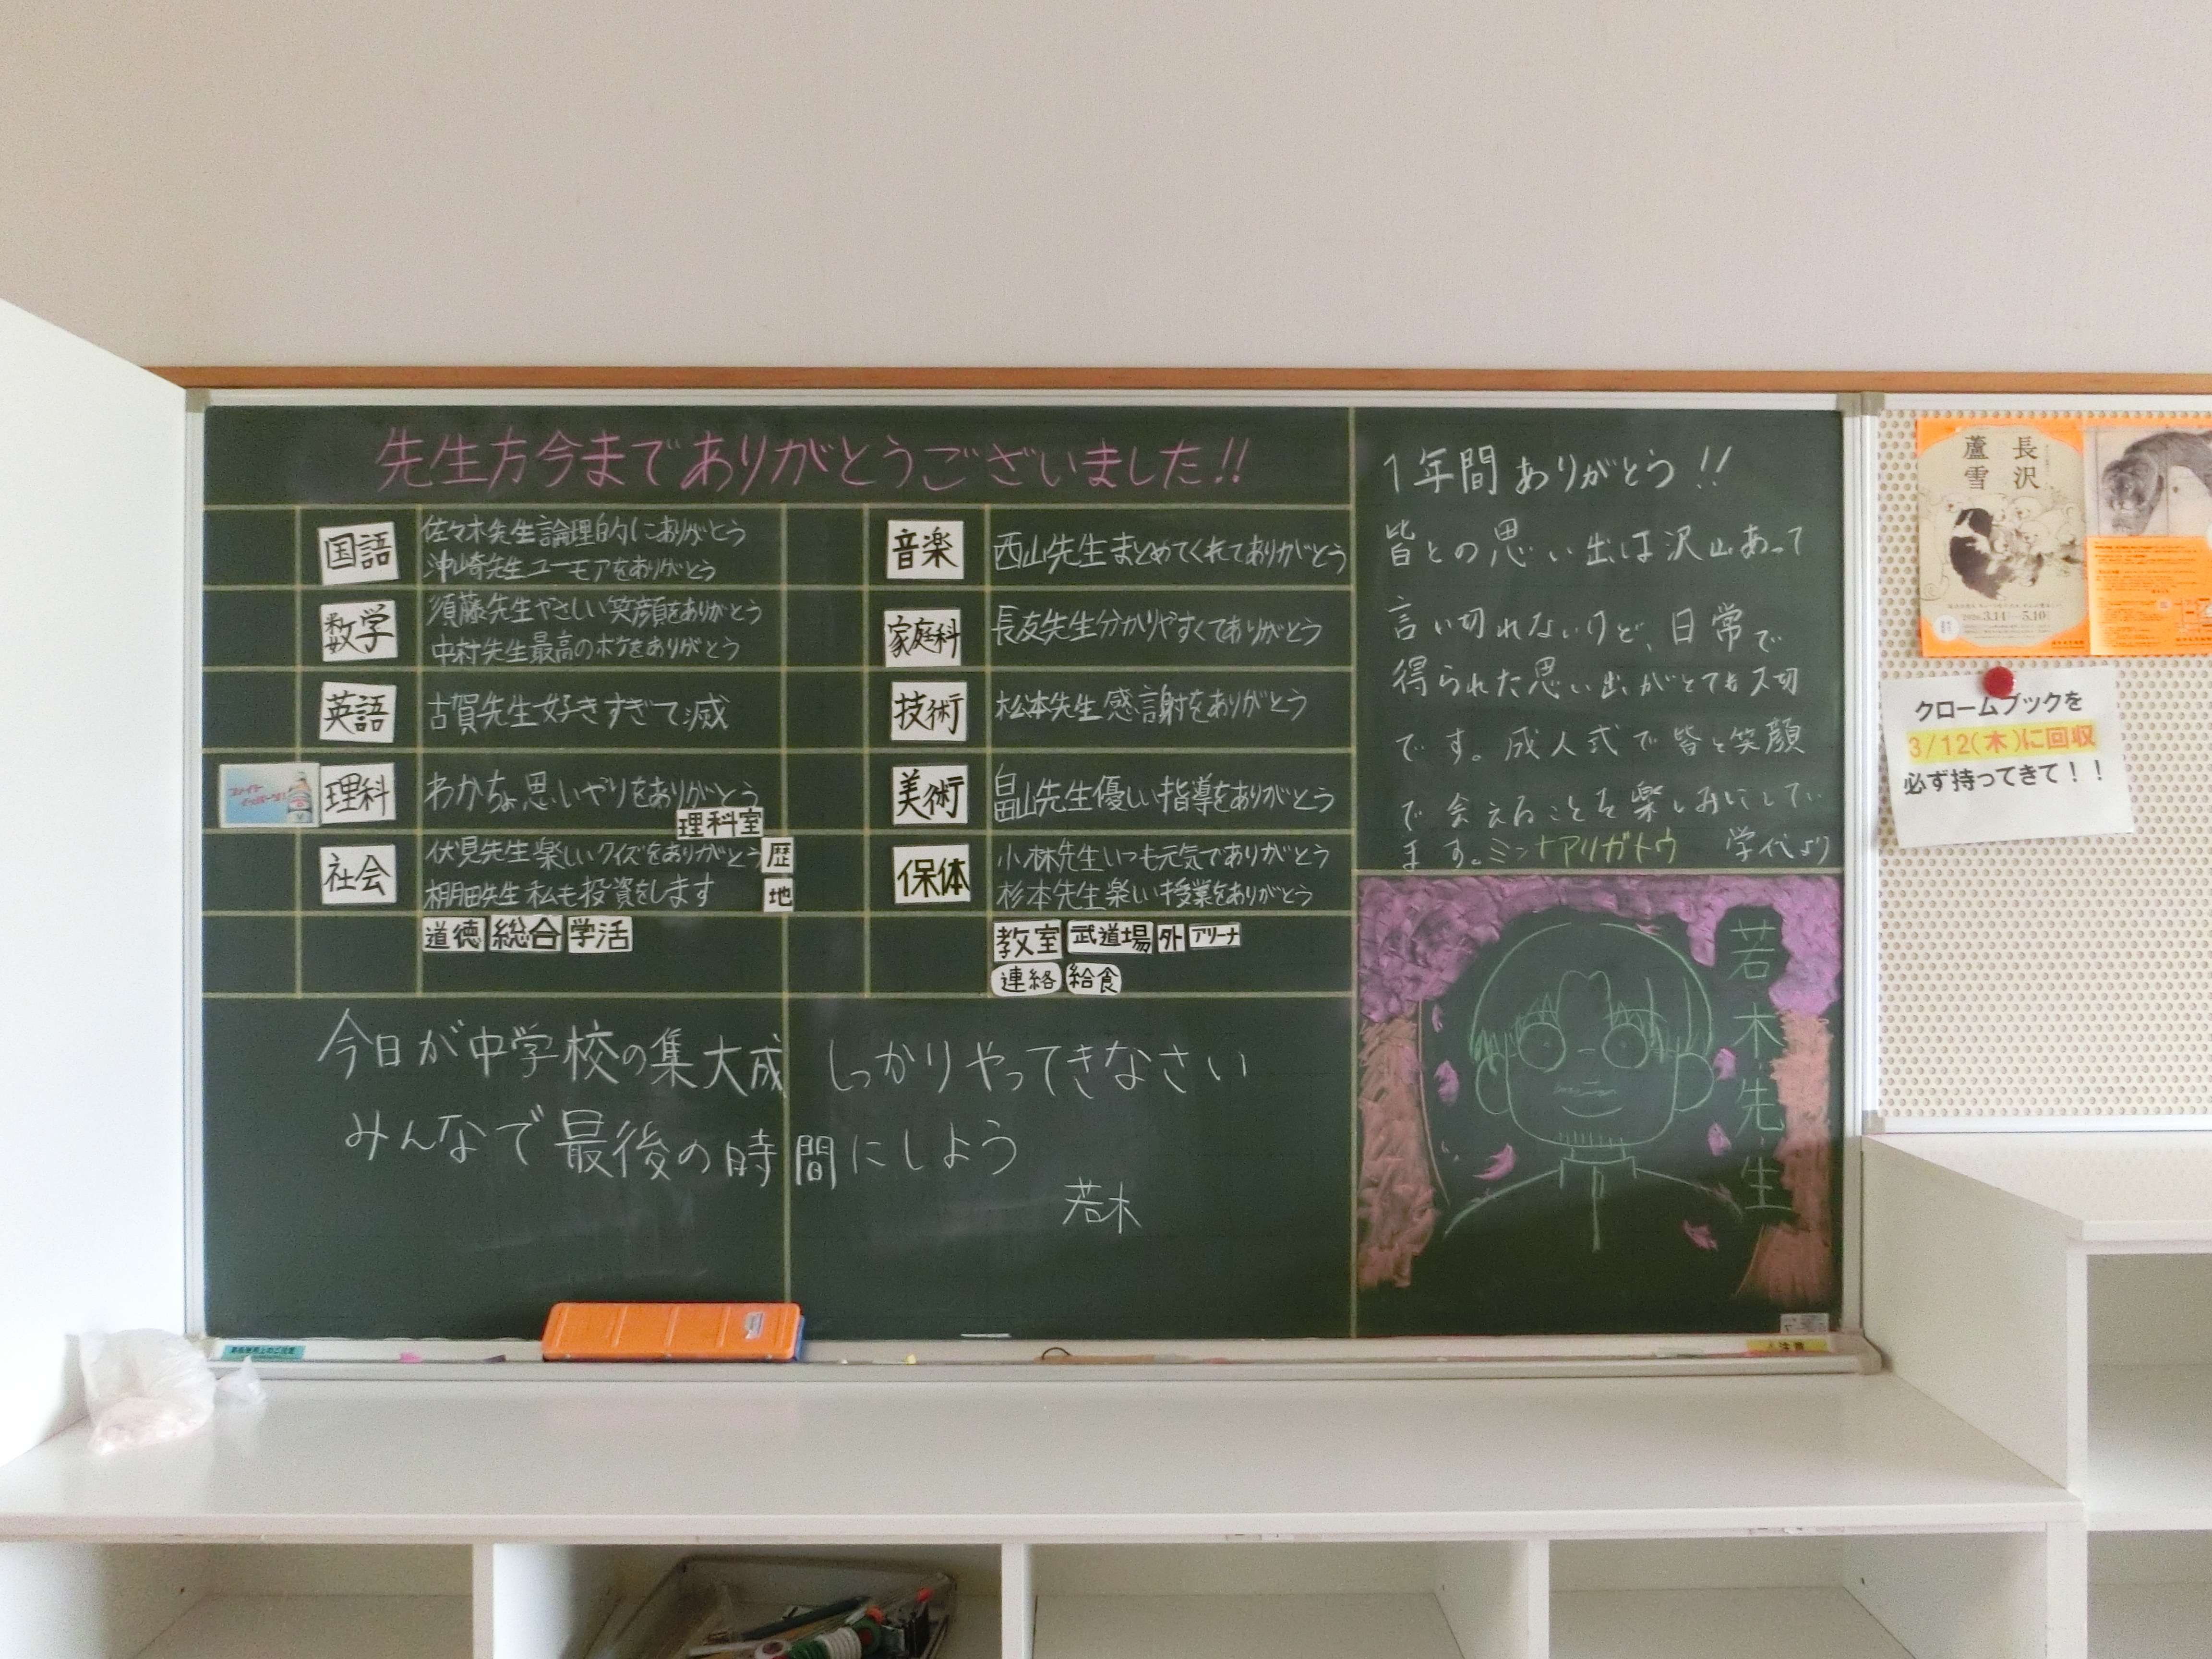 先生方今までありがとうございました!!
国語
佐々木先生論理的にありがとう
沖崎先生ユーモアをありがとう
数学
須藤先生やさしい笑顔をありがとう
中村先生最高のボケをありがとう
英語
古賀先生好きすぎて滅
理科
わかちょ思いやりをありがとう
理科室
社会
伏見先生楽しいクイズをありがとう
先生私も投資をします
歴
地
道徳 総合 学活
音楽
西山先生まとめてくれてありがとう
家庭科
長友先生分かりやすくてありがとう
技術
松本先生感謝をありがとう
美術
畠山先生優しい指導をありがとう
保体
小林先生いつも元気でありがとう
杉本先生楽しい授業をありがとう
教室 武道場 外 アリーナ
連絡 給食
今日が中学校の集大成 しっかりやってきなさい
みんなで最後の時間にしよう
若木
1年間ありがとう!!
皆との思い出は沢山あって
言い切れないけど、日常で
得られた思い出がとても大切
です。成人式で皆と笑顔
で会えることを楽しみにしてい
ます。ミンナアリガトウ 学代より
若木先生
長沢
蘆雪
2026 3.14 5.10
クロームブックを
3/12(木)に回収
必ず持ってきて！！
注意